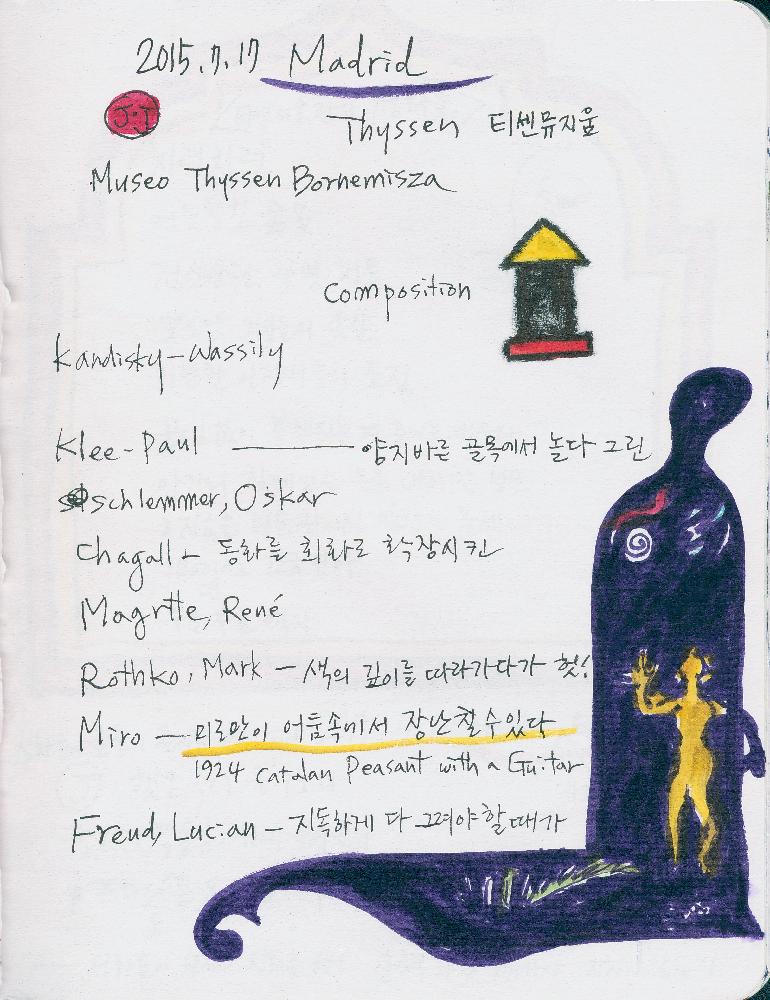 2015.7.17 Madrid
J.J
Thyssen 티센뮤지움
Museo Thyssen Bornemisza
Composition
Kandisky-Wassily
Klee-Paul — 양지바른 골목에서 놀다 그린
schlemmer, Oskar
Chagall - 동화를 회화로 확장시킨
Magrtte, René
Rothko, Mark - 색의 깊이를 따라가다가 헛!
Miro - 미로만이 어둠속에서 장난칠수있다
1924 Catalan Peasant with a Guitar
Freud, Lucian - 지독하게 다 그려야할때가